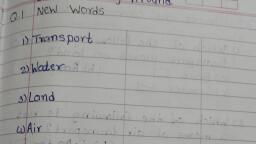 Q.1 New Words
1) Transport
2) Water
3) Land
4) Air